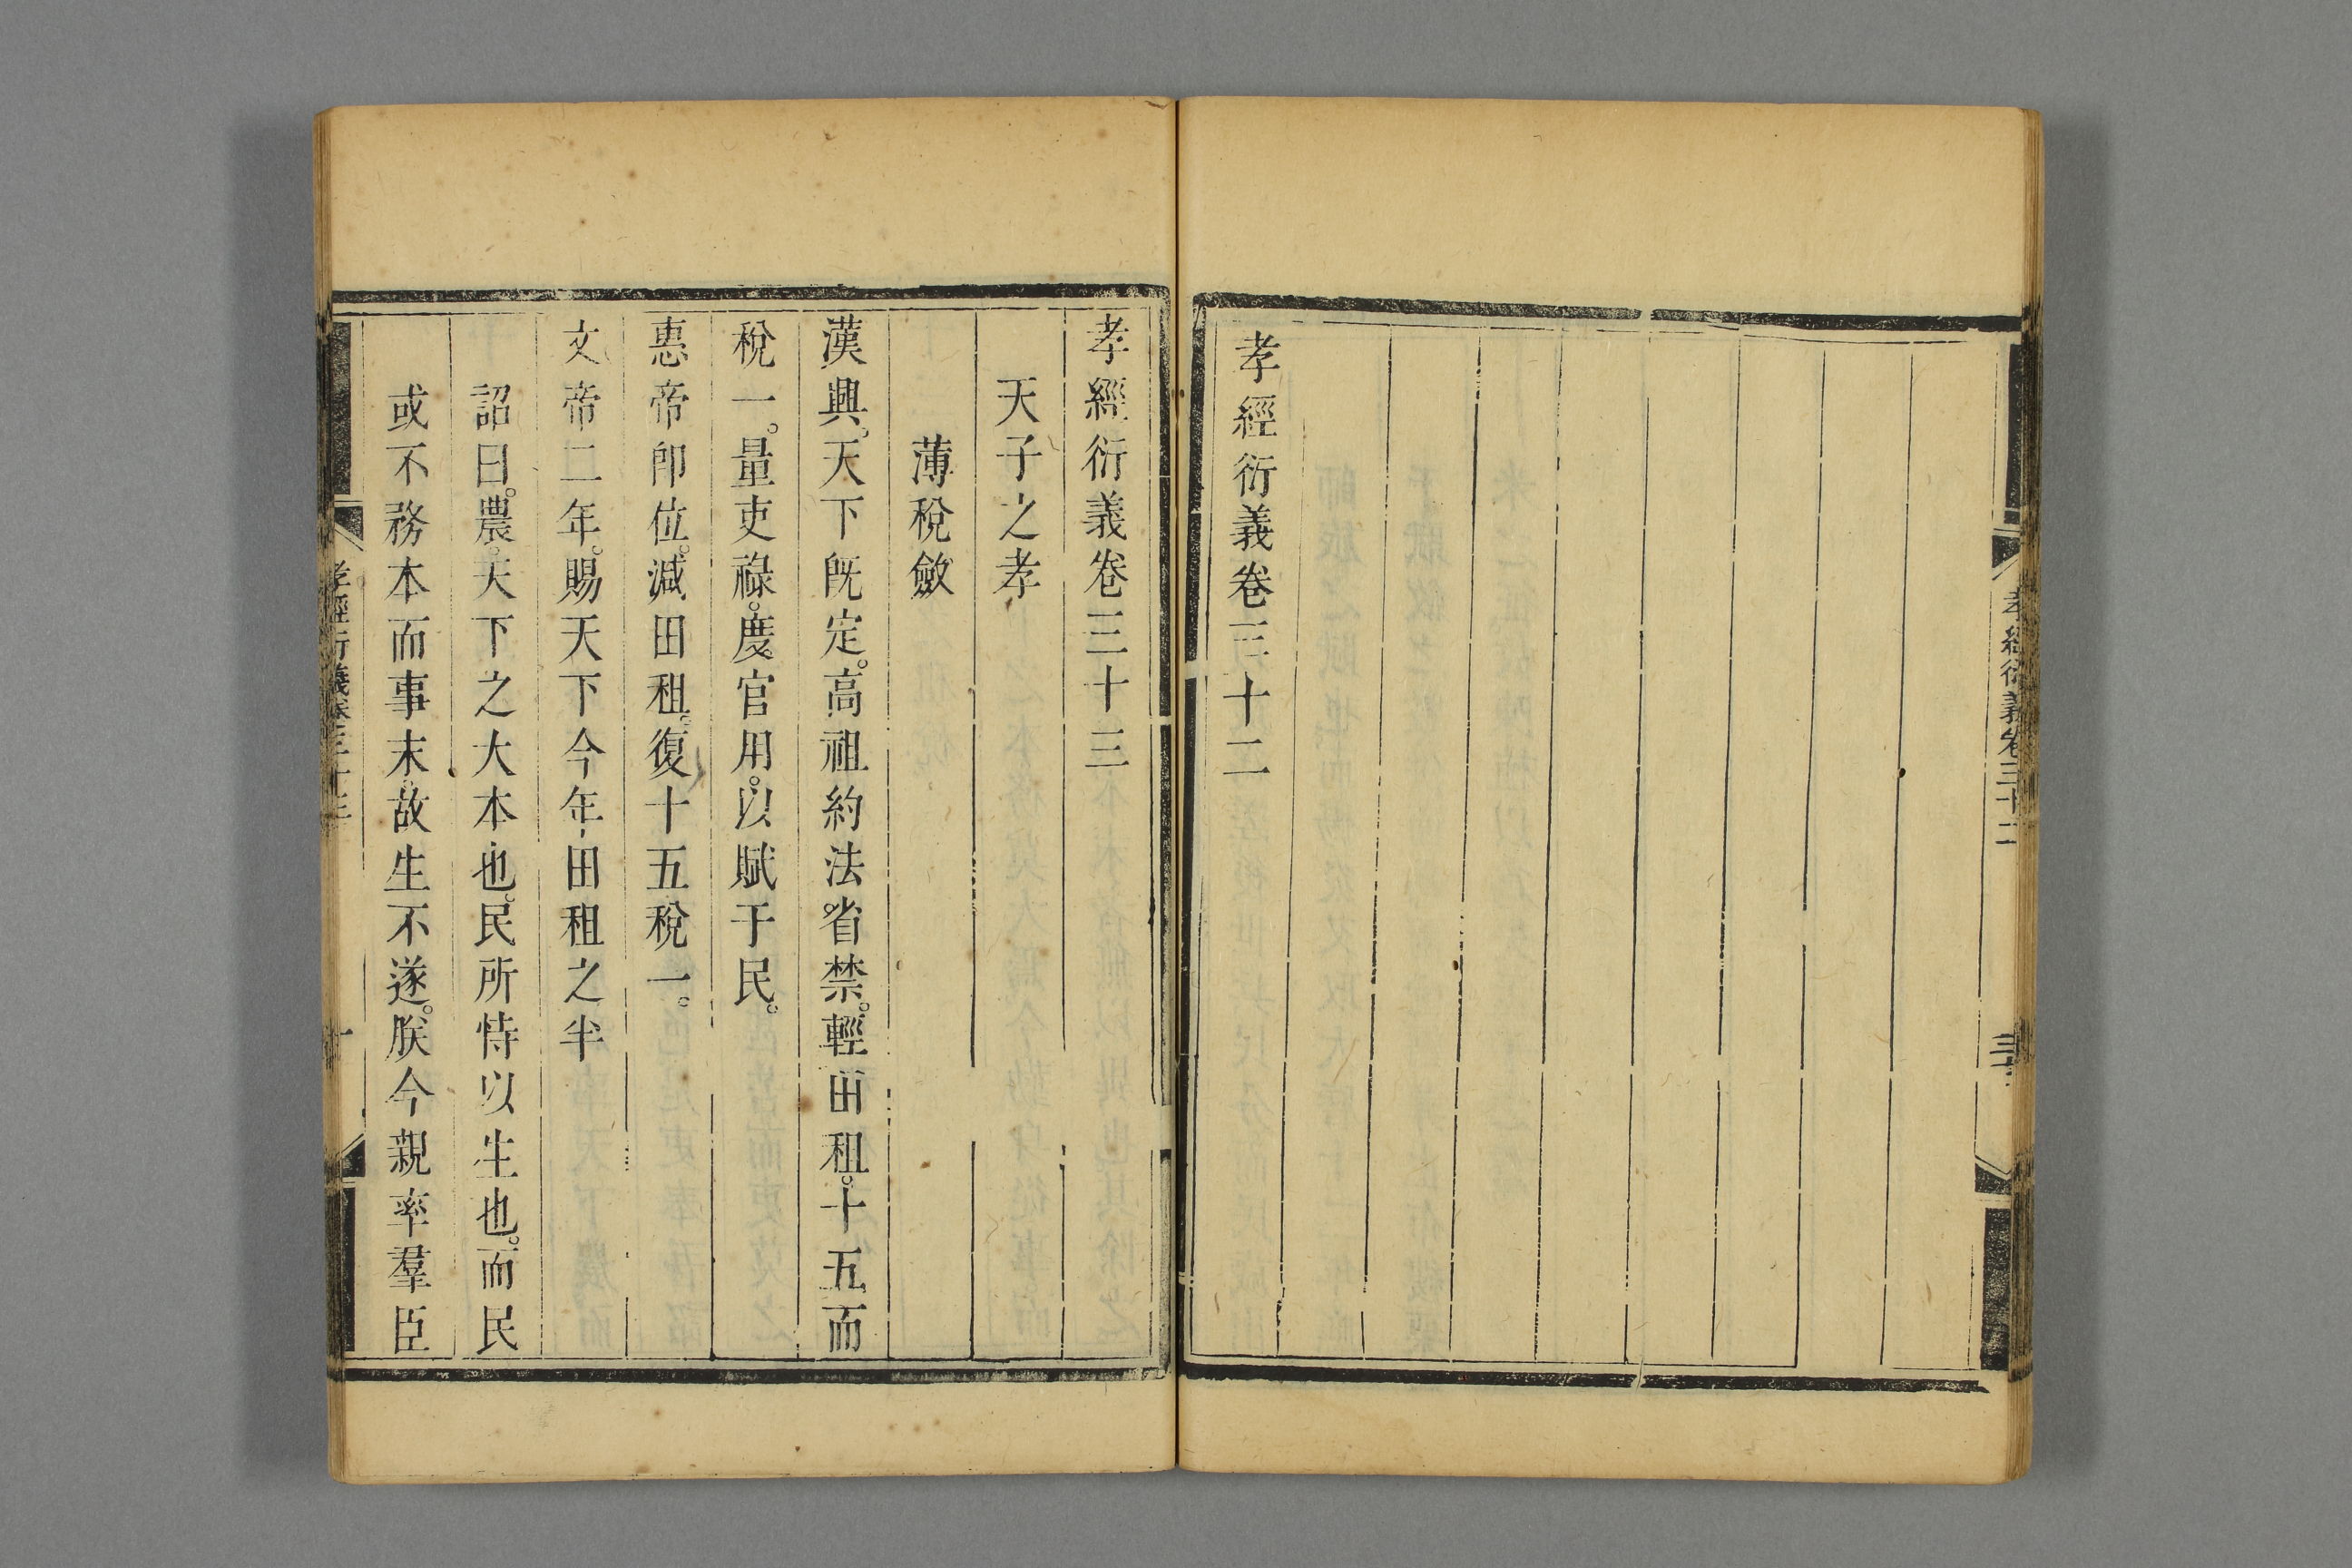 孝經衍義卷三十二
孝經衍義卷三十二
孝經衍義卷三十三
天子之孝
薄稅斂
漢興。天下既定。高祖約法。省禁。輕田租。十五而
稅一。量吏祿。度官用。以賦于民。
惠帝卽位。減田租。復十五稅一。
文帝二年。賜天下今年田租之半
詔曰。農。天下之大本也。民所恃以生也。而民
或不務本而事末。故生不遂。朕今親率羣臣
孝經衍義卷三十三
一